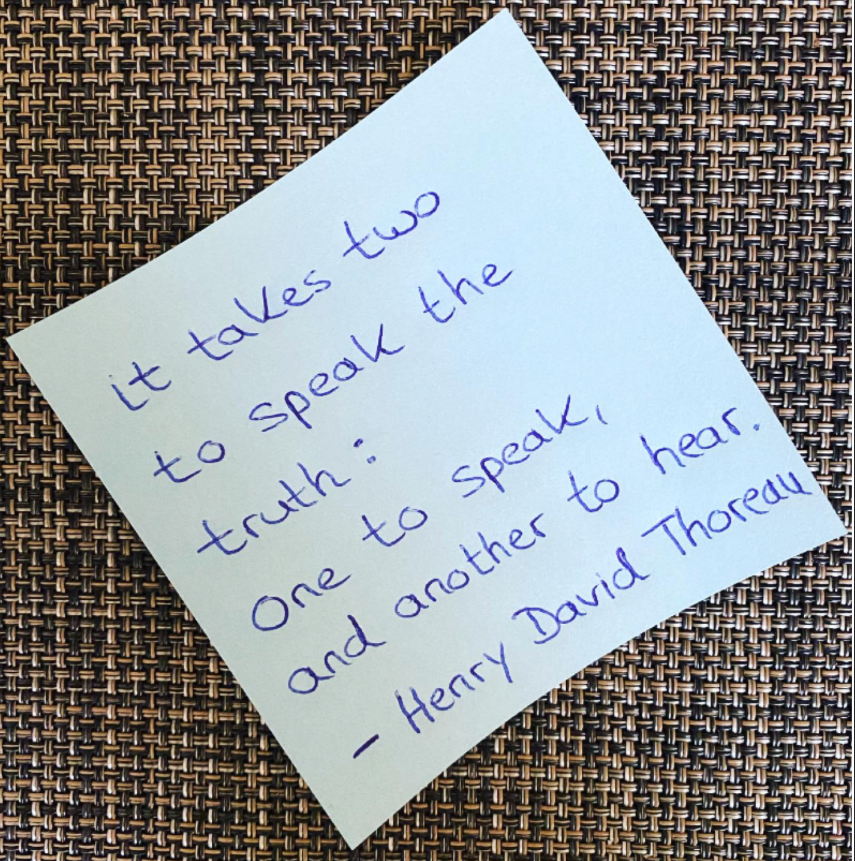 it takes two
to speak the
truth:
One to speak,
and another to hear.
- Henry David Thoreau